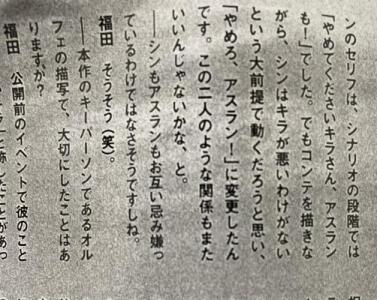 ンのセリフは、シナリオの段階では
「やめてくださいキラさん、アスラン
も！」でした。でもコンテを描きな
がら、シンはキラが悪いわけがない
という大前提で動くだろうと思い、
「やめろ、アスラン！」に変更したん
です。この二人のような関係もまた
いいんじゃないかな、と。
──シンもアスランもお互い忌み嫌っ
ているわけではなさそうですしね。
福田　そうそう（笑）。
──本作のキーパーソンであるオル
フェの描写で、大切にしたことはあ
りますか？
福田　公開前のイベントで彼のこと